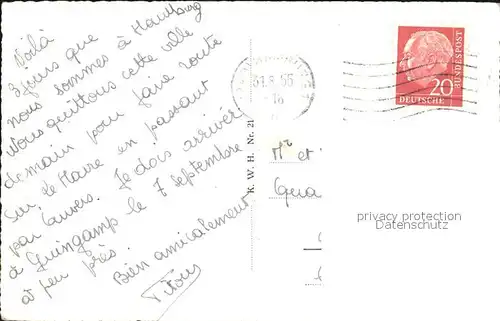 Voilà
2 jours que
nous sommes à Hambourg
Nous quittons cette ville
demain pour faire route
sur le Havre en passant
par Anvers. Je dois arriver
à Guingamp le 7 septembre
à peu près.
Bien amicalement
Titou
K. W. H. Nr. 21
31.8.55
-18
20
DEUTSCHE
BUNDESPOST
Mr et
privacy protection
Datenschutz